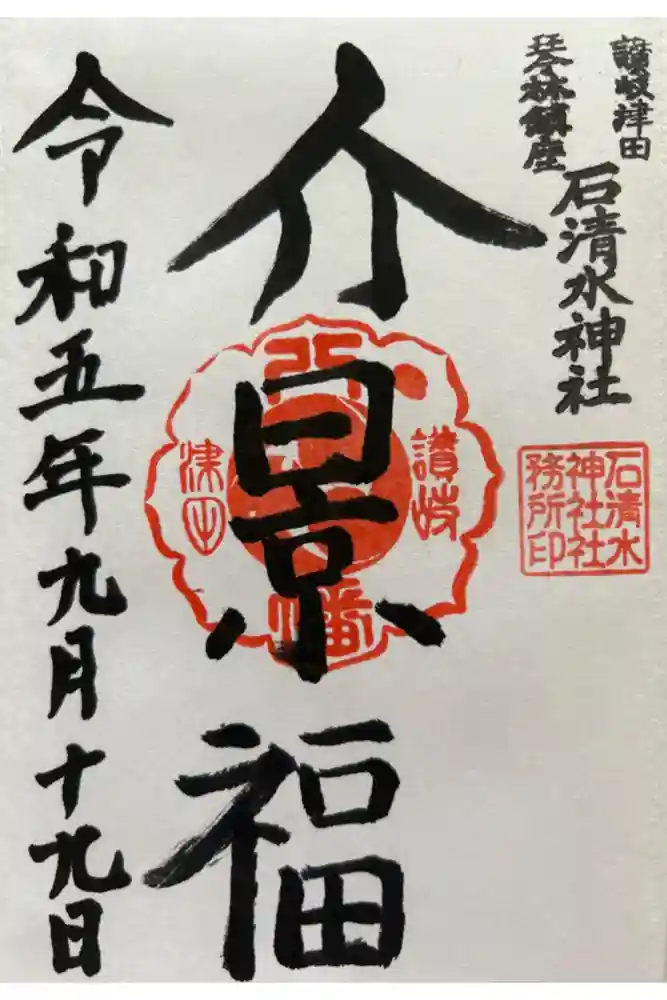 讃岐津田
琴林鎮座
石清水神社
石清水
神社社
務所印
介景福
讃岐
津田
幡
令和五年九月十九日